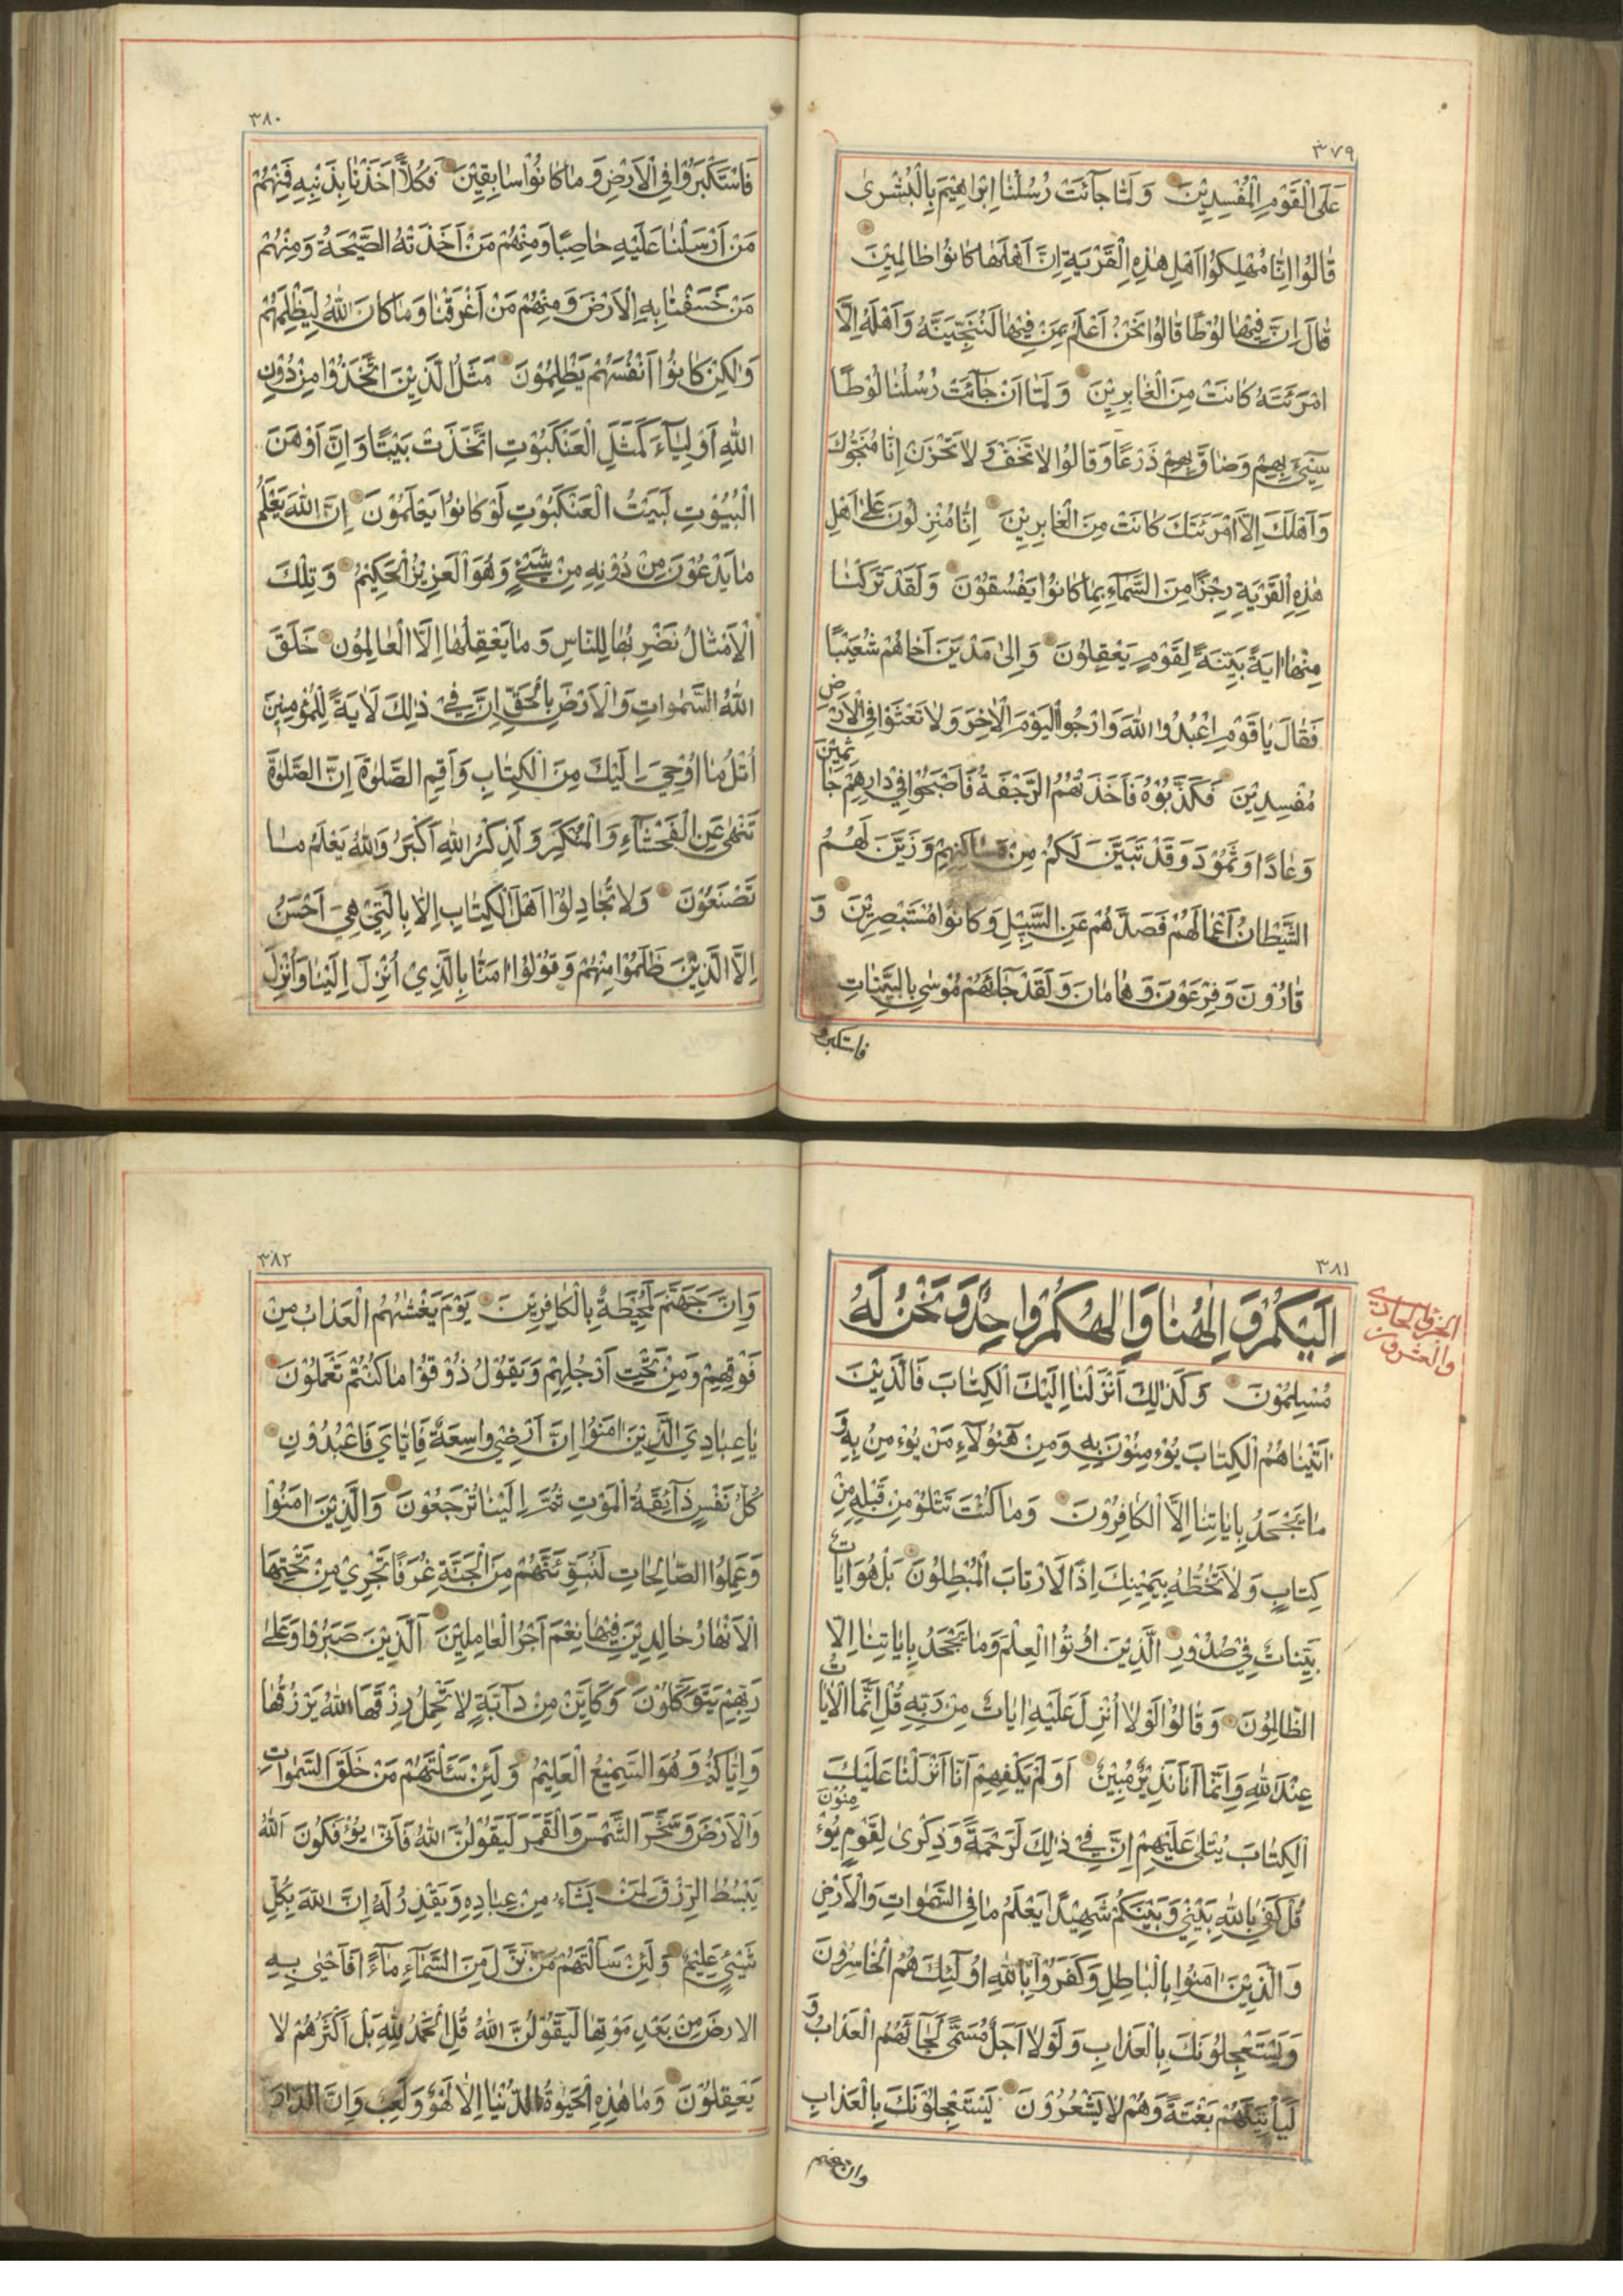 ٣٧٩
عَلَى الْقَوْمِ الْمُفْسِدِيْنَ وَلَمّٰا جٰآئَتْ رُسُلُنٰا اِبْرٰاهِيْمَ بِالْبُشْرٰى
قٰالُوْا اِنّٰا مُهْلِكُوْا اَهْلِ هٰذِهِ الْقَرْيَةِ اِنَّ اَهْلَهٰا كٰانُوْا ظٰالِمِيْنَ
قٰالَ اِنَّ فِيْهٰا لُوْطًا قٰالُوْا نَحْنُ اَعْلَمُ بِمَنْ فِيْهٰا لَنُنَجِّيَنَّهُ وَاَهْلَهُ اِلَّا
امْرَئَتَهُ كٰانَتْ مِنَ الْغٰابِرِيْنَ وَلَمّٰا اَنْ جٰآئَتْ رُسُلُنٰا لُوْطًا
سِيْٓئَ بِهِمْ وَضٰاقَ بِهِمْ ذَرْعًا وَقٰالُوْا لٰا تَخَفْ وَلٰا تَحْزَنْ اِنّٰا مُنَجُّوْكَ
وَاَهْلَكَ اِلَّا امْرَئَتَكَ كٰانَتْ مِنَ الْغٰابِرِيْنَ اِنّٰا مُنْزِلُوْنَ عَلٰى اَهْلِ
هٰذِهِ الْقَرْيَةِ رِجْزًا مِنَ السَّمٰآءِ بِمٰا كٰانُوْا يَفْسُقُوْنَ وَلَقَدْ تَرَكْنٰا
مِنْهٰا اٰيَةً بَيِّنَةً لِقَوْمٍ يَعْقِلُوْنَ وَاِلٰى مَدْيَنَ اَخٰاهُمْ شُعَيْبًا
فَقٰالَ يٰا قَوْمِ اعْبُدُوْا اللّٰهَ وَارْجُوا الْيَوْمَ الْاٰخِرَ وَلٰا تَعْثَوْا فِي الْاَرْضِ
مُفْسِدِيْنَ فَكَذَّبُوْهُ فَاَخَذَتْهُمُ الرَّجْفَةُ فَاَصْبَحُوْا فِيْ دٰارِهِمْ جٰاثِمِيْنَ
وَعٰادًا وَثَمُوْدَ وَقَدْ تَبَيَّنَ لَكُمْ مِنْ مَسٰاكِنِهِمْ وَزَيَّنَ لَهُمُ
الشَّيْطٰانُ اَعْمٰالَهُمْ فَصَدَّهُمْ عَنِ السَّبِيْلِ وَكٰانُوْا مُسْتَبْصِرِيْنَ وَ
قٰارُوْنَ وَفِرْعَوْنَ وَهٰامٰانَ وَلَقَدْ جٰآئَهُمْ مُوْسٰى بِالْبَيِّنٰاتِ
فاستكبروا
٣٨٠
فَاسْتَكْبَرُوْا فِي الْاَرْضِ وَمٰا كٰانُوْا سٰابِقِيْنَ فَكُلًّا اَخَذْنٰا بِذَنْبِهِ فَمِنْهُمْ
مَنْ اَرْسَلْنٰا عَلَيْهِ حٰاصِبًا وَمِنْهُمْ مَنْ اَخَذَتْهُ الصَّيْحَةُ وَمِنْهُمْ
مَنْ خَسَفْنٰا بِهِ الْاَرْضَ وَمِنْهُمْ مَنْ اَغْرَقْنٰا وَمٰا كٰانَ اللّٰهُ لِيَظْلِمَهُمْ
وَلٰكِنْ كٰانُوْا اَنْفُسَهُمْ يَظْلِمُوْنَ مَثَلُ الَّذِيْنَ اتَّخَذُوْا مِنْ دُوْنِ
اللّٰهِ اَوْلِيٰآءَ كَمَثَلِ الْعَنْكَبُوْتِ اتَّخَذَتْ بَيْتًا وَاِنَّ اَوْهَنَ
الْبُيُوْتِ لَبَيْتُ الْعَنْكَبُوْتِ لَوْ كٰانُوْا يَعْلَمُوْنَ اِنَّ اللّٰهَ يَعْلَمُ
مٰا يَدْعُوْنَ مِنْ دُوْنِهِ مِنْ شَيْئٍ وَهُوَ الْعَزِيْزُ الْحَكِيْمُ وَتِلْكَ
الْاَمْثٰالُ نَضْرِبُهٰا لِلنّٰاسِ وَمٰا يَعْقِلُهٰا اِلَّا الْعٰالِمُوْنَ خَلَقَ
اللّٰهُ السَّمٰوٰاتِ وَالْاَرْضَ بِالْحَقِّ اِنَّ فِيْ ذٰلِكَ لَاٰيَةً لِلْمُؤْمِنِيْنَ
اُتْلُ مٰا اُوْحِيَ اِلَيْكَ مِنَ الْكِتٰابِ وَاَقِمِ الصَّلٰوةَ اِنَّ الصَّلٰوةَ
تَنْهٰى عَنِ الْفَحْشٰآءِ وَالْمُنْكَرِ وَلَذِكْرُ اللّٰهِ اَكْبَرُ وَاللّٰهُ يَعْلَمُ مٰا
تَصْنَعُوْنَ وَلٰا تُجٰادِلُوْا اَهْلَ الْكِتٰابِ اِلّٰا بِالَّتِيْ هِيَ اَحْسَنُ
اِلَّا الَّذِيْنَ ظَلَمُوْا مِنْهُمْ وَقُوْلُوْا اٰمَنّٰا بِالَّذِيْ اُنْزِلَ اِلَيْنٰا وَاُنْزِلَ
٣٨١
الجزؤ الحادي
والعشرون
اِلَيْكُمْ وَاِلٰهُنٰا وَاِلٰهُكُمْ وٰاحِدٌ وَنَحْنُ لَهُ
مُسْلِمُوْنَ وَكَذٰلِكَ اَنْزَلْنٰا اِلَيْكَ الْكِتٰابَ فَالَّذِيْنَ
اٰتَيْنٰاهُمُ الْكِتٰابَ يُؤْمِنُوْنَ بِهِ وَمِنْ هٰٓؤُلٰآءِ مَنْ يُؤْمِنُ بِهِ وَ
مٰا يَجْحَدُ بِاٰيٰاتِنٰا اِلَّا الْكٰافِرُوْنَ وَمٰا كُنْتَ تَتْلُوْ مِنْ قَبْلِهِ مِنْ
كِتٰابٍ وَلٰا تَخُطُّهُ بِيَمِيْنِكَ اِذًا لَارْتٰابَ الْمُبْطِلُوْنَ بَلْ هُوَ اٰيٰاتٌ
بَيِّنٰاتٌ فِيْ صُدُوْرِ الَّذِيْنَ اُوْتُوا الْعِلْمَ وَمٰا يَجْحَدُ بِاٰيٰاتِنٰا اِلَّا
الظّٰالِمُوْنَ وَقٰالُوْا لَوْلٰا اُنْزِلَ عَلَيْهِ اٰيٰاتٌ مِنْ رَبِّهِ قُلْ اِنَّمَا الْاٰيٰاتُ
عِنْدَ اللّٰهِ وَاِنَّمٰا اَنَا نَذِيْرٌ مُبِيْنٌ اَوَلَمْ يَكْفِهِمْ اَنّٰا اَنْزَلْنٰا عَلَيْكَ
الْكِتٰابَ يُتْلٰى عَلَيْهِمْ اِنَّ فِيْ ذٰلِكَ لَرَحْمَةً وَذِكْرٰى لِقَوْمٍ يُؤْمِنُوْنَ
قُلْ كَفٰى بِاللّٰهِ بَيْنِيْ وَبَيْنَكُمْ شَهِيْدًا يَعْلَمُ مٰا فِي السَّمٰوٰاتِ وَالْاَرْضِ
وَالَّذِيْنَ اٰمَنُوْا بِالْبٰاطِلِ وَكَفَرُوْا بِاللّٰهِ اُوْلٰٓئِكَ هُمُ الْخٰاسِرُوْنَ
وَيَسْتَعْجِلُوْنَكَ بِالْعَذٰابِ وَلَوْلٰا اَجَلٌ مُسَمًّى لَجٰآئَهُمُ الْعَذٰابُ وَ
لَيَأْتِيَنَّهُمْ بَغْتَةً وَهُمْ لٰا يَشْعُرُوْنَ يَسْتَعْجِلُوْنَكَ بِالْعَذٰابِ
وان جهنم
٣٨٢
وَاِنَّ جَهَنَّمَ لَمُحِيْطَةٌ بِالْكٰافِرِيْنَ يَوْمَ يَغْشٰىهُمُ الْعَذٰابُ مِنْ
فَوْقِهِمْ وَمِنْ تَحْتِ اَرْجُلِهِمْ وَيَقُوْلُ ذُوْقُوْا مٰا كُنْتُمْ تَعْمَلُوْنَ
يٰا عِبٰادِيَ الَّذِيْنَ اٰمَنُوْا اِنَّ اَرْضِيْ وٰاسِعَةٌ فَاِيّٰايَ فَاعْبُدُوْنِ
كُلُّ نَفْسٍ ذٰآئِقَةُ الْمَوْتِ ثُمَّ اِلَيْنٰا تُرْجَعُوْنَ وَالَّذِيْنَ اٰمَنُوْا
وَعَمِلُوا الصّٰالِحٰاتِ لَنُبَوِّئَنَّهُمْ مِنَ الْجَنَّةِ غُرَفًا تَجْرِيْ مِنْ تَحْتِهَا
الْاَنْهٰارُ خٰالِدِيْنَ فِيْهٰا نِعْمَ اَجْرُ الْعٰامِلِيْنَ اَلَّذِيْنَ صَبَرُوْا وَعَلٰى
رَبِّهِمْ يَتَوَكَّلُوْنَ وَكَاَيِّنْ مِنْ دٰآبَّةٍ لٰا تَحْمِلُ رِزْقَهَا اللّٰهُ يَرْزُقُهٰا
وَاِيّٰاكُمْ وَهُوَ السَّمِيْعُ الْعَلِيْمُ وَلَئِنْ سَئَلْتَهُمْ مَنْ خَلَقَ السَّمٰوٰاتِ
وَالْاَرْضَ وَسَخَّرَ الشَّمْسَ وَالْقَمَرَ لَيَقُوْلُنَّ اللّٰهُ فَاَنّٰى يُؤْفَكُوْنَ اَللّٰهُ
يَبْسُطُ الرِّزْقَ لِمَنْ يَشٰآءُ مِنْ عِبٰادِهِ وَيَقْدِرُ لَهُ اِنَّ اللّٰهَ بِكُلِّ
شَيْئٍ عَلِيْمٌ وَلَئِنْ سَاَلْتَهُمْ مَنْ نَزَّلَ مِنَ السَّمٰآءِ مٰآءً فَاَحْيٰى بِهِ
الْارضَ مِنْ بَعْدِ مَوْتِهٰا لَيَقُوْلُنَّ اللّٰهُ قُلِ الْحَمْدُ لِلّٰهِ بَلْ اَكْثَرُهُمْ لٰا
يَعْقِلُوْنَ وَمٰا هٰذِهِ الْحَيٰوةُ الدُّنْيٰا اِلّٰا لَهْوٌ وَلَعِبٌ وَاِنَّ الدّٰارَ